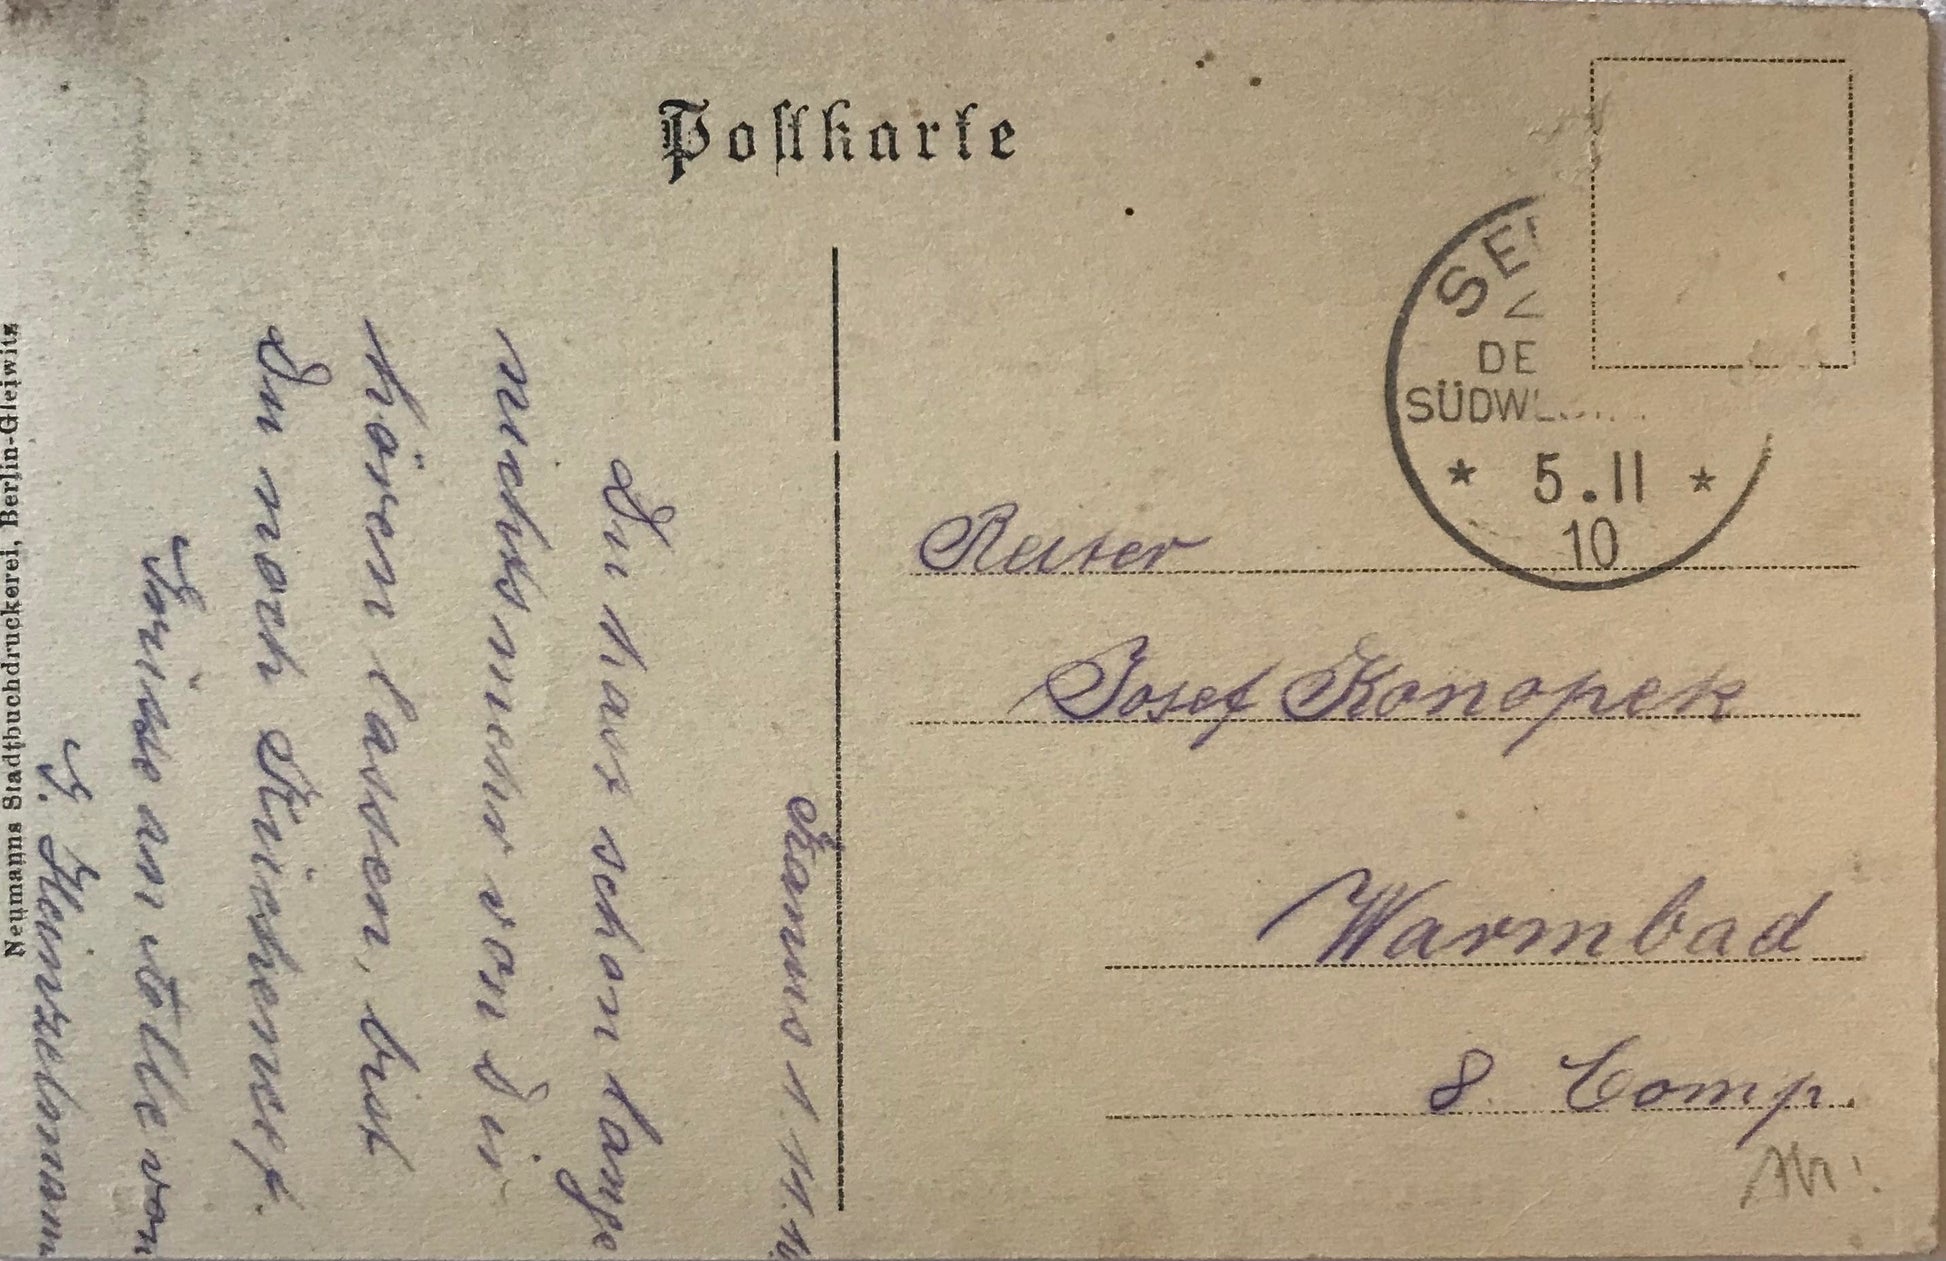 Postkarte
SE
DE
SÜDW
* 5.11 *
10
Reiter
Josef Konopek
Warmbad
8. Comp.
Kanus 1.11.10
Du hast schon lange
nichts mehr von Dir
hören lassen, bist
Du noch Küchenchef.
Grüsse an Alle von
Neumanns Stadtbuchdruckerei, Berlin-Gleiwitz